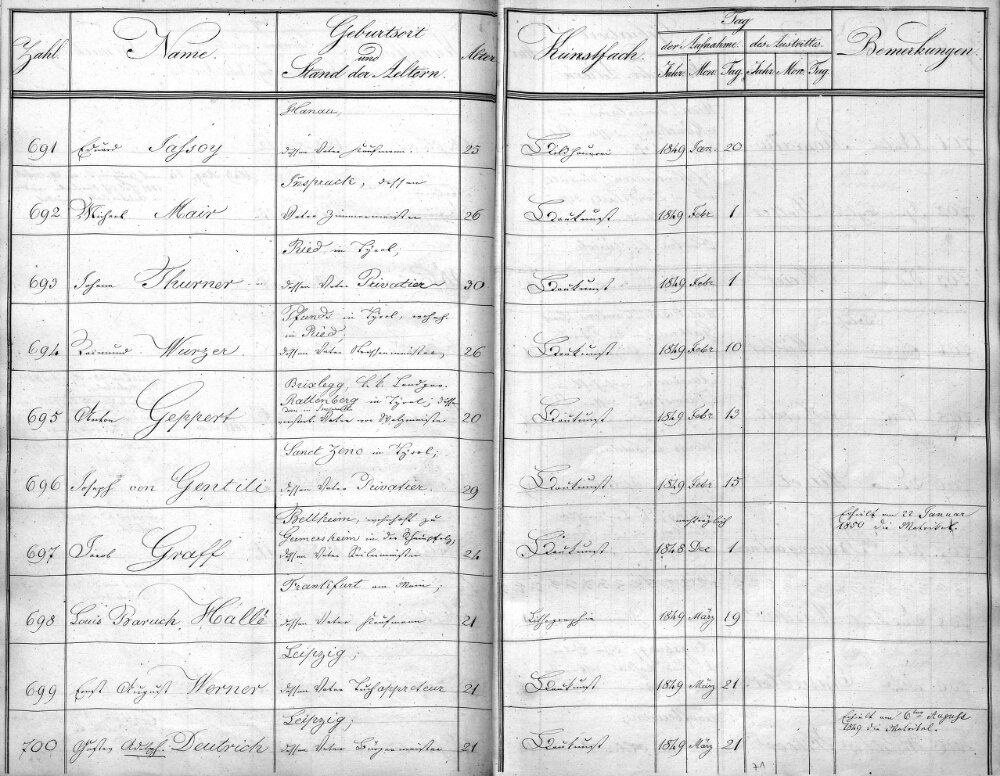 Zahl. Name. Geburtsort und Stand der Aeltern. Alter Kunstfach. Tag der Aufnahme. des Austrittes. Bemerkungen.
Jahr. Mon. Tag. Jahr Mon. Tag.
Hanau,
691 Eduard Jassoy dessen Vater Kaufmann. 25 Bildhauerei 1849 Jan. 20
Inspruck, dessen
692 Michael Mair Vater Zimmermeister 26 Baukunst 1849 Febr 1
Ried in Tyrol,
693 Johann Thurner dessen Vater Privatier 30 Baukunst 1849 Febr 1
Pfunds in Tyrol, wohnh.
in Ried,
694 Raimund Wurzer. dessen Vater 26 Baukunst 1849 Febr 10
Brixlegg, k. k. Landger.
Rattenberg in Tyrol;
695 Anton Geppert 20 Baukunst 1849 Febr 13
Sanct Zeno in Tyrol;
696 Joseph von Gentili dessen Vater Privatier. 29 Baukunst 1849 Febr 15
Bellheim, wohnhaft zu nachträglich Erhielt am 22 Januar
Germersheim in der Rheinpfalz, 1850 die Matrikel.
697 Jacob Graff dessen Vater 24 Baukunst 1848 Dec 1
Frankfurt am Main;
698 Louis Baruch Hallé dessen Vater Kaufmann 21 Lithographie 1849 März 19
Leipzig;
699 Ernst August Werner dessen Vater Tuchappreteur 21 Baukunst 1849 März 21
Leipzig; Erhielt am 6ten August
1849 die Matrikel.
700 Gustav Adolph Deutrich dessen Vater Bürgermeister 21 Baukunst 1849 März 21
71